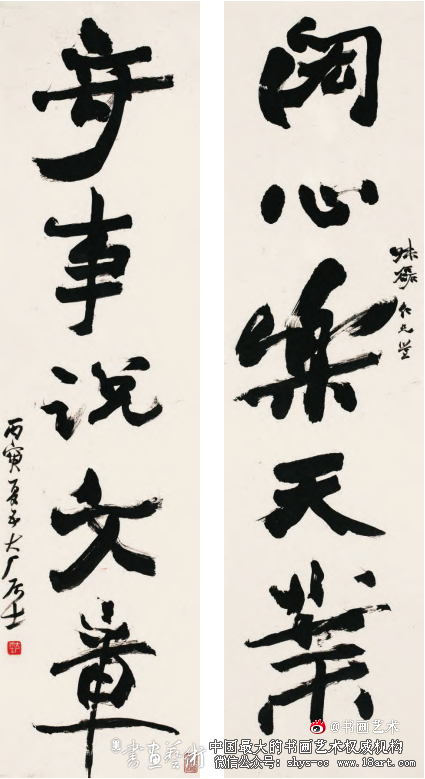 心樂天業
仁兄
事说文章
丙寅夏大厂居士
@书画艺术
書畫藝術
中国最大的书画艺术权威机构
微信公众号: shys-cc 官网: www.18art.com